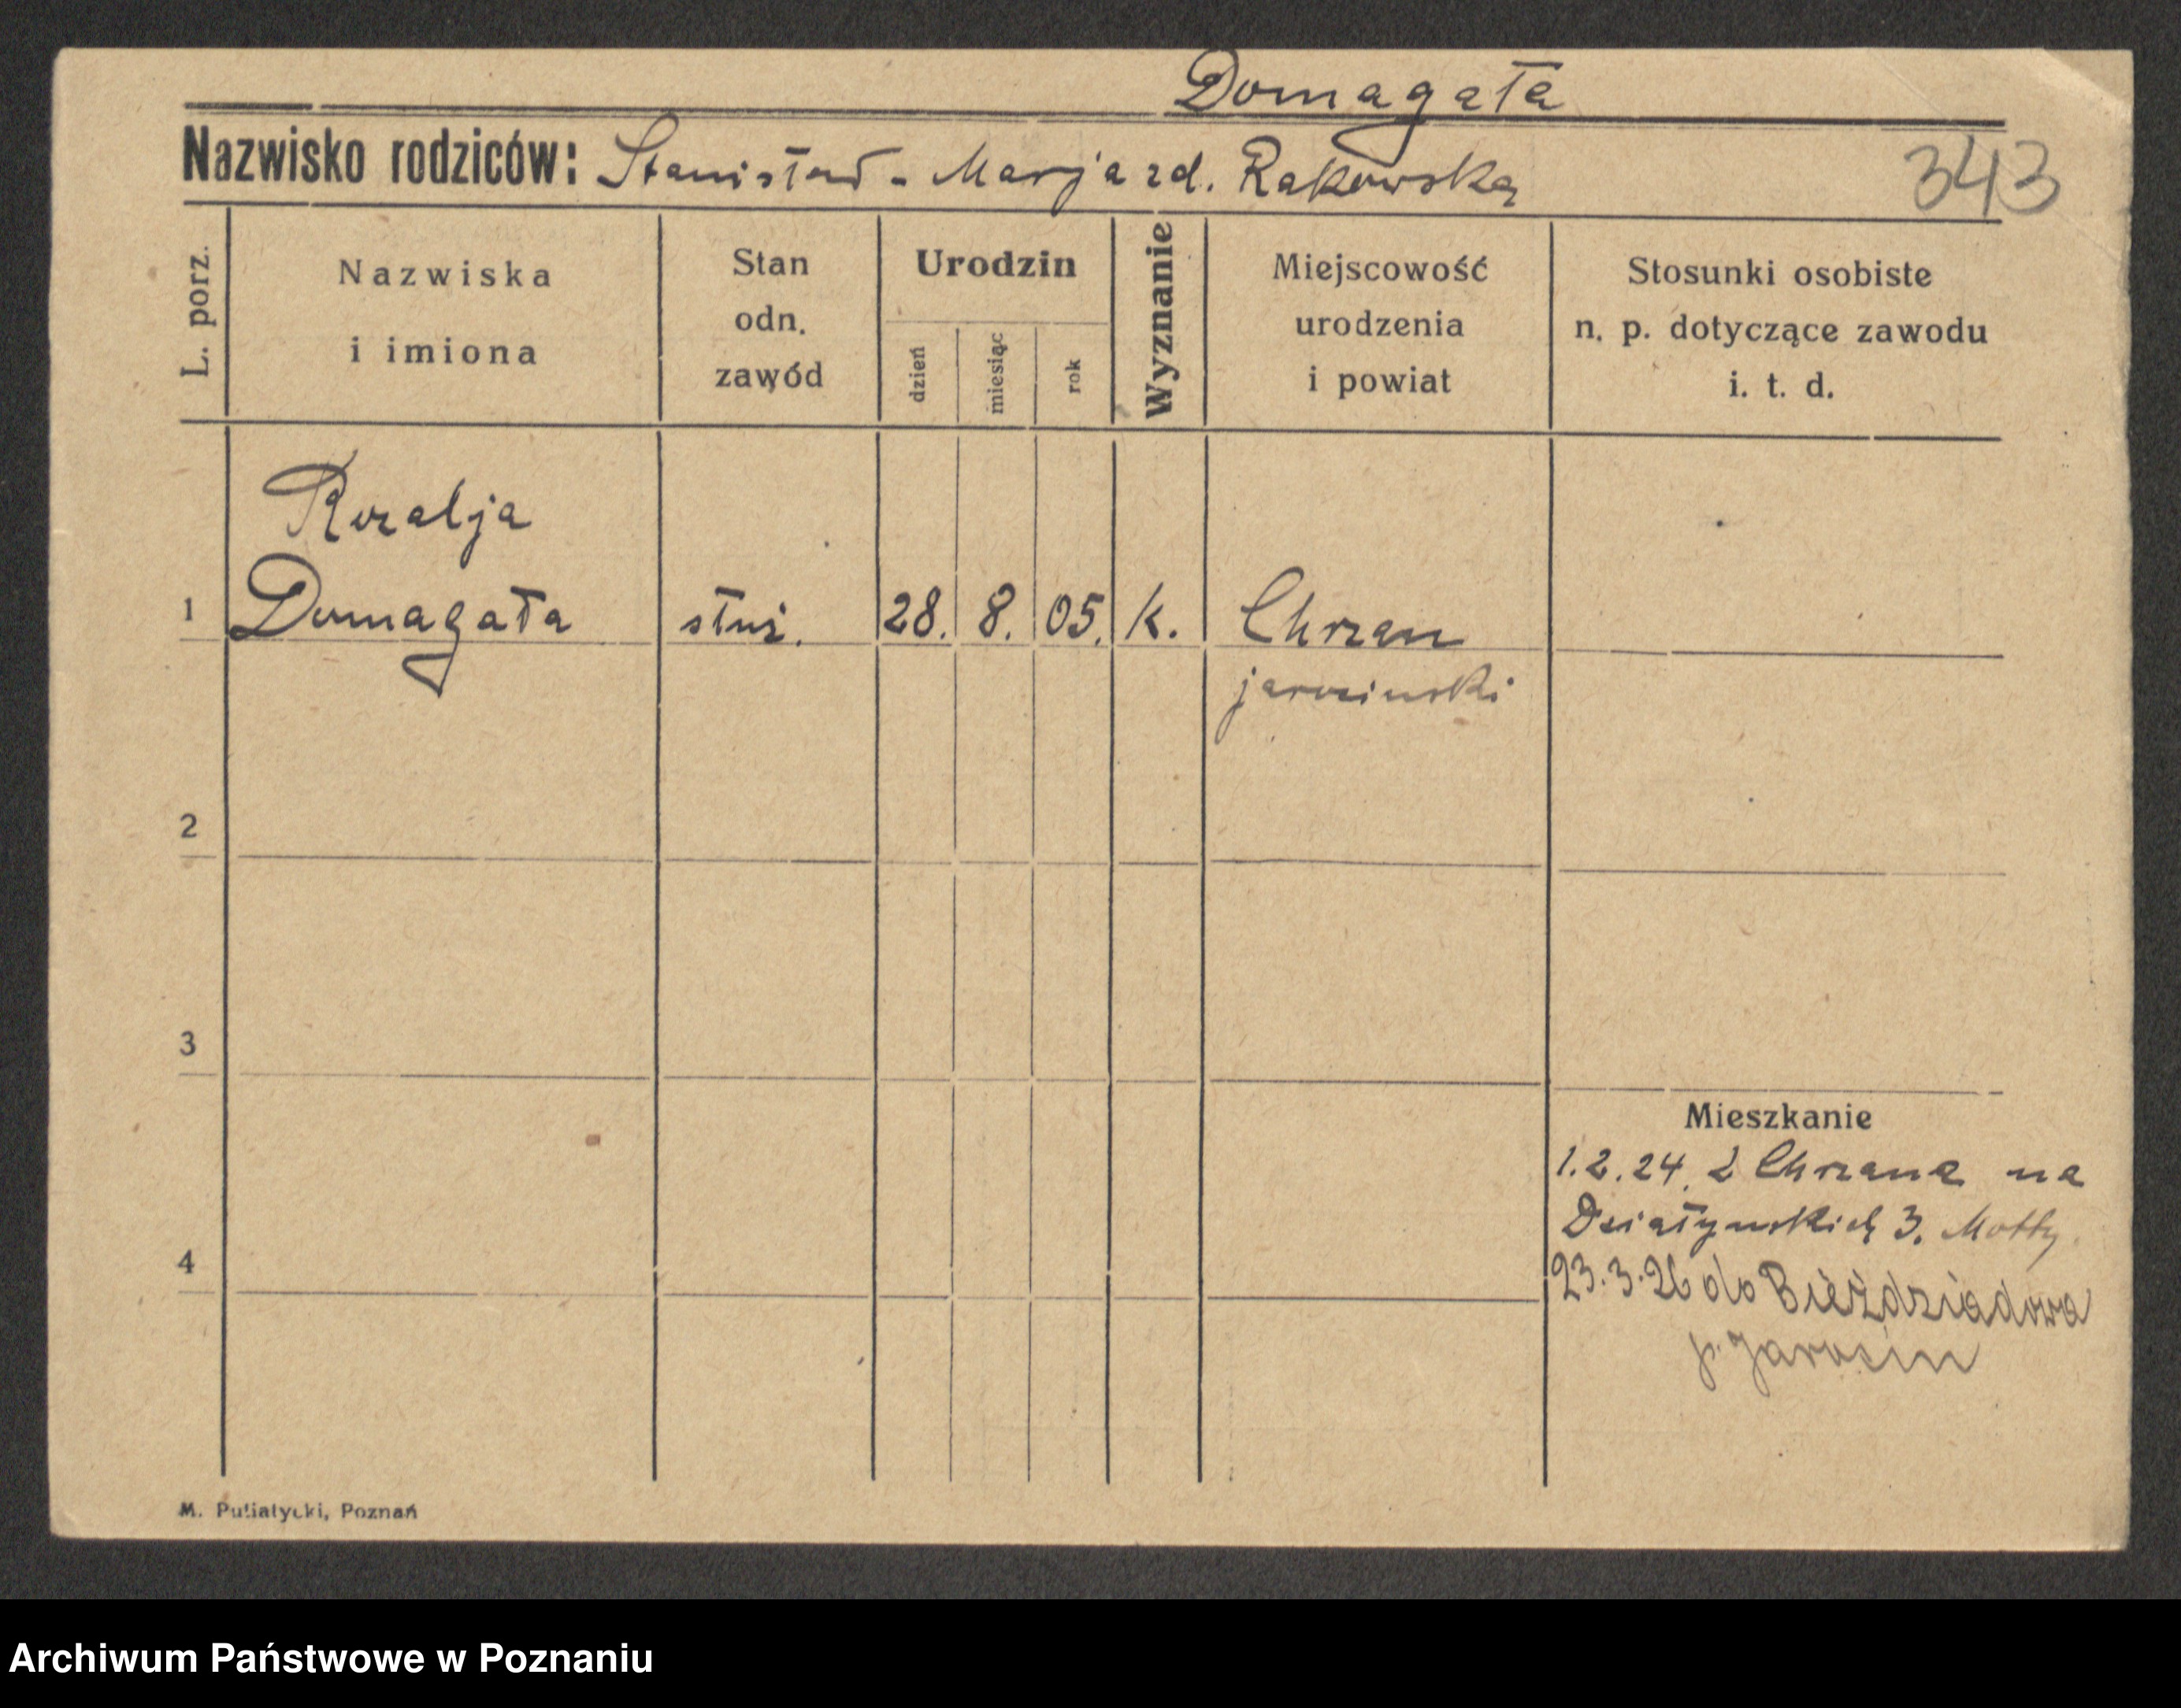 Domagała
Nazwisko rodziców: Stanisław - Marja zd. Rakowska
343
L. porz.
Nazwiska
i imiona
Stan
odn.
zawód
Urodzin
dzień
miesiąc
rok
Wyznanie
Miejscowość
urodzenia
i powiat
Stosunki osobiste
n. p. dotyczące zawodu
i. t. d.
Rozalja
1 Domagała służ. 28. 8. 05. k. Chrzan
jarociński
2
3
4
Mieszkanie
1.2.24. z Chrzana na
Działyńskich 3. Motty
23.3.26 do Bieździadowa
p. Jarocin
M. Putiatycki, Poznań
Archiwum Państwowe w Poznaniu